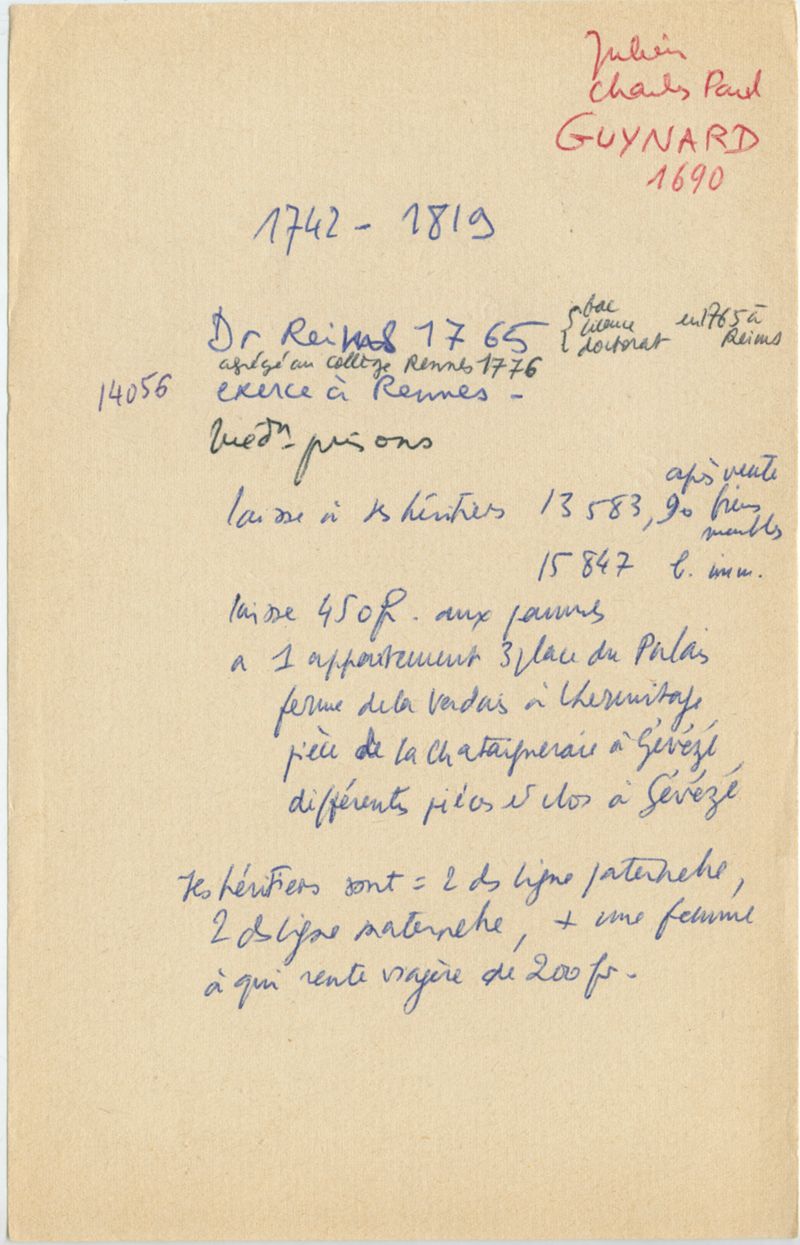 Julien
Charles Paul
GUYNARD
1690
1742 - 1819
Dr Reims 1765 { bac licence doctorat en 1765 à Reims
agrégé au collège Rennes 1776
14056 exerce à Rennes -
Médn prisons
laisse à ses héritiers 13 583,90 après vente biens meubles
15 847 b. imm.
laisse 450 fr. aux pauvres
a 1 appartement 3 place du Palais
ferme de la Verdais à Lhermitage,
pièce de la Chataigneraie à Gévezé,
différents pièces et clos à Gévezé
ses héritiers sont = 2 ds ligne paternelle,
2 ds ligne maternelle, + une femme
à qui rente viagère de 200 fr.